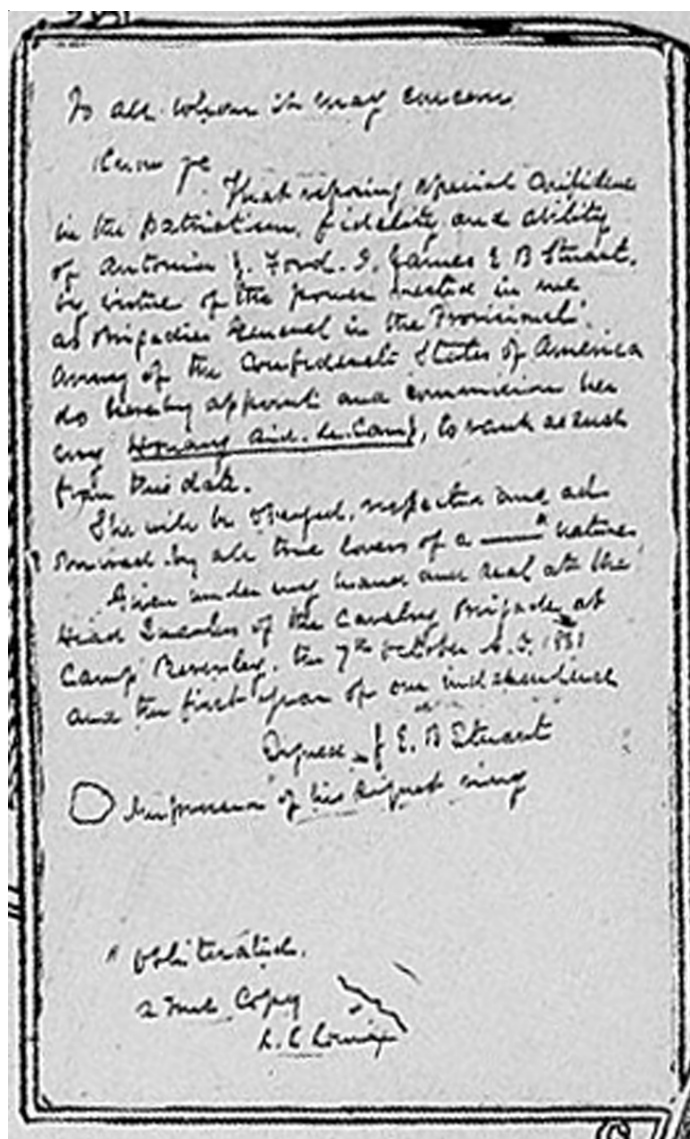 To all whom it may concern
Know ye
That reposing special confidence
in the patriotism, fidelity and ability
of Antonia J. Ford. I, James E B Stuart,
by virtue of the power vested in me
as Brigadier General in the Provisional
Army of the Confederate States of America
do hereby appoint and commission her
my Honary aid-de-Camp, to rank as such
from this date.
She will be obeyed, respected and ad
mired by all true lovers of a —— " nature
Given under my hand and seal at the
Head Quarters of the Cavalry Brigade at
Camp Beverley, the 7th October A.D. 1861
and the first year of our independence
Signed J E. B Stuart
Impression of his signet ring
" obliterated.
a true Copy
L. C.